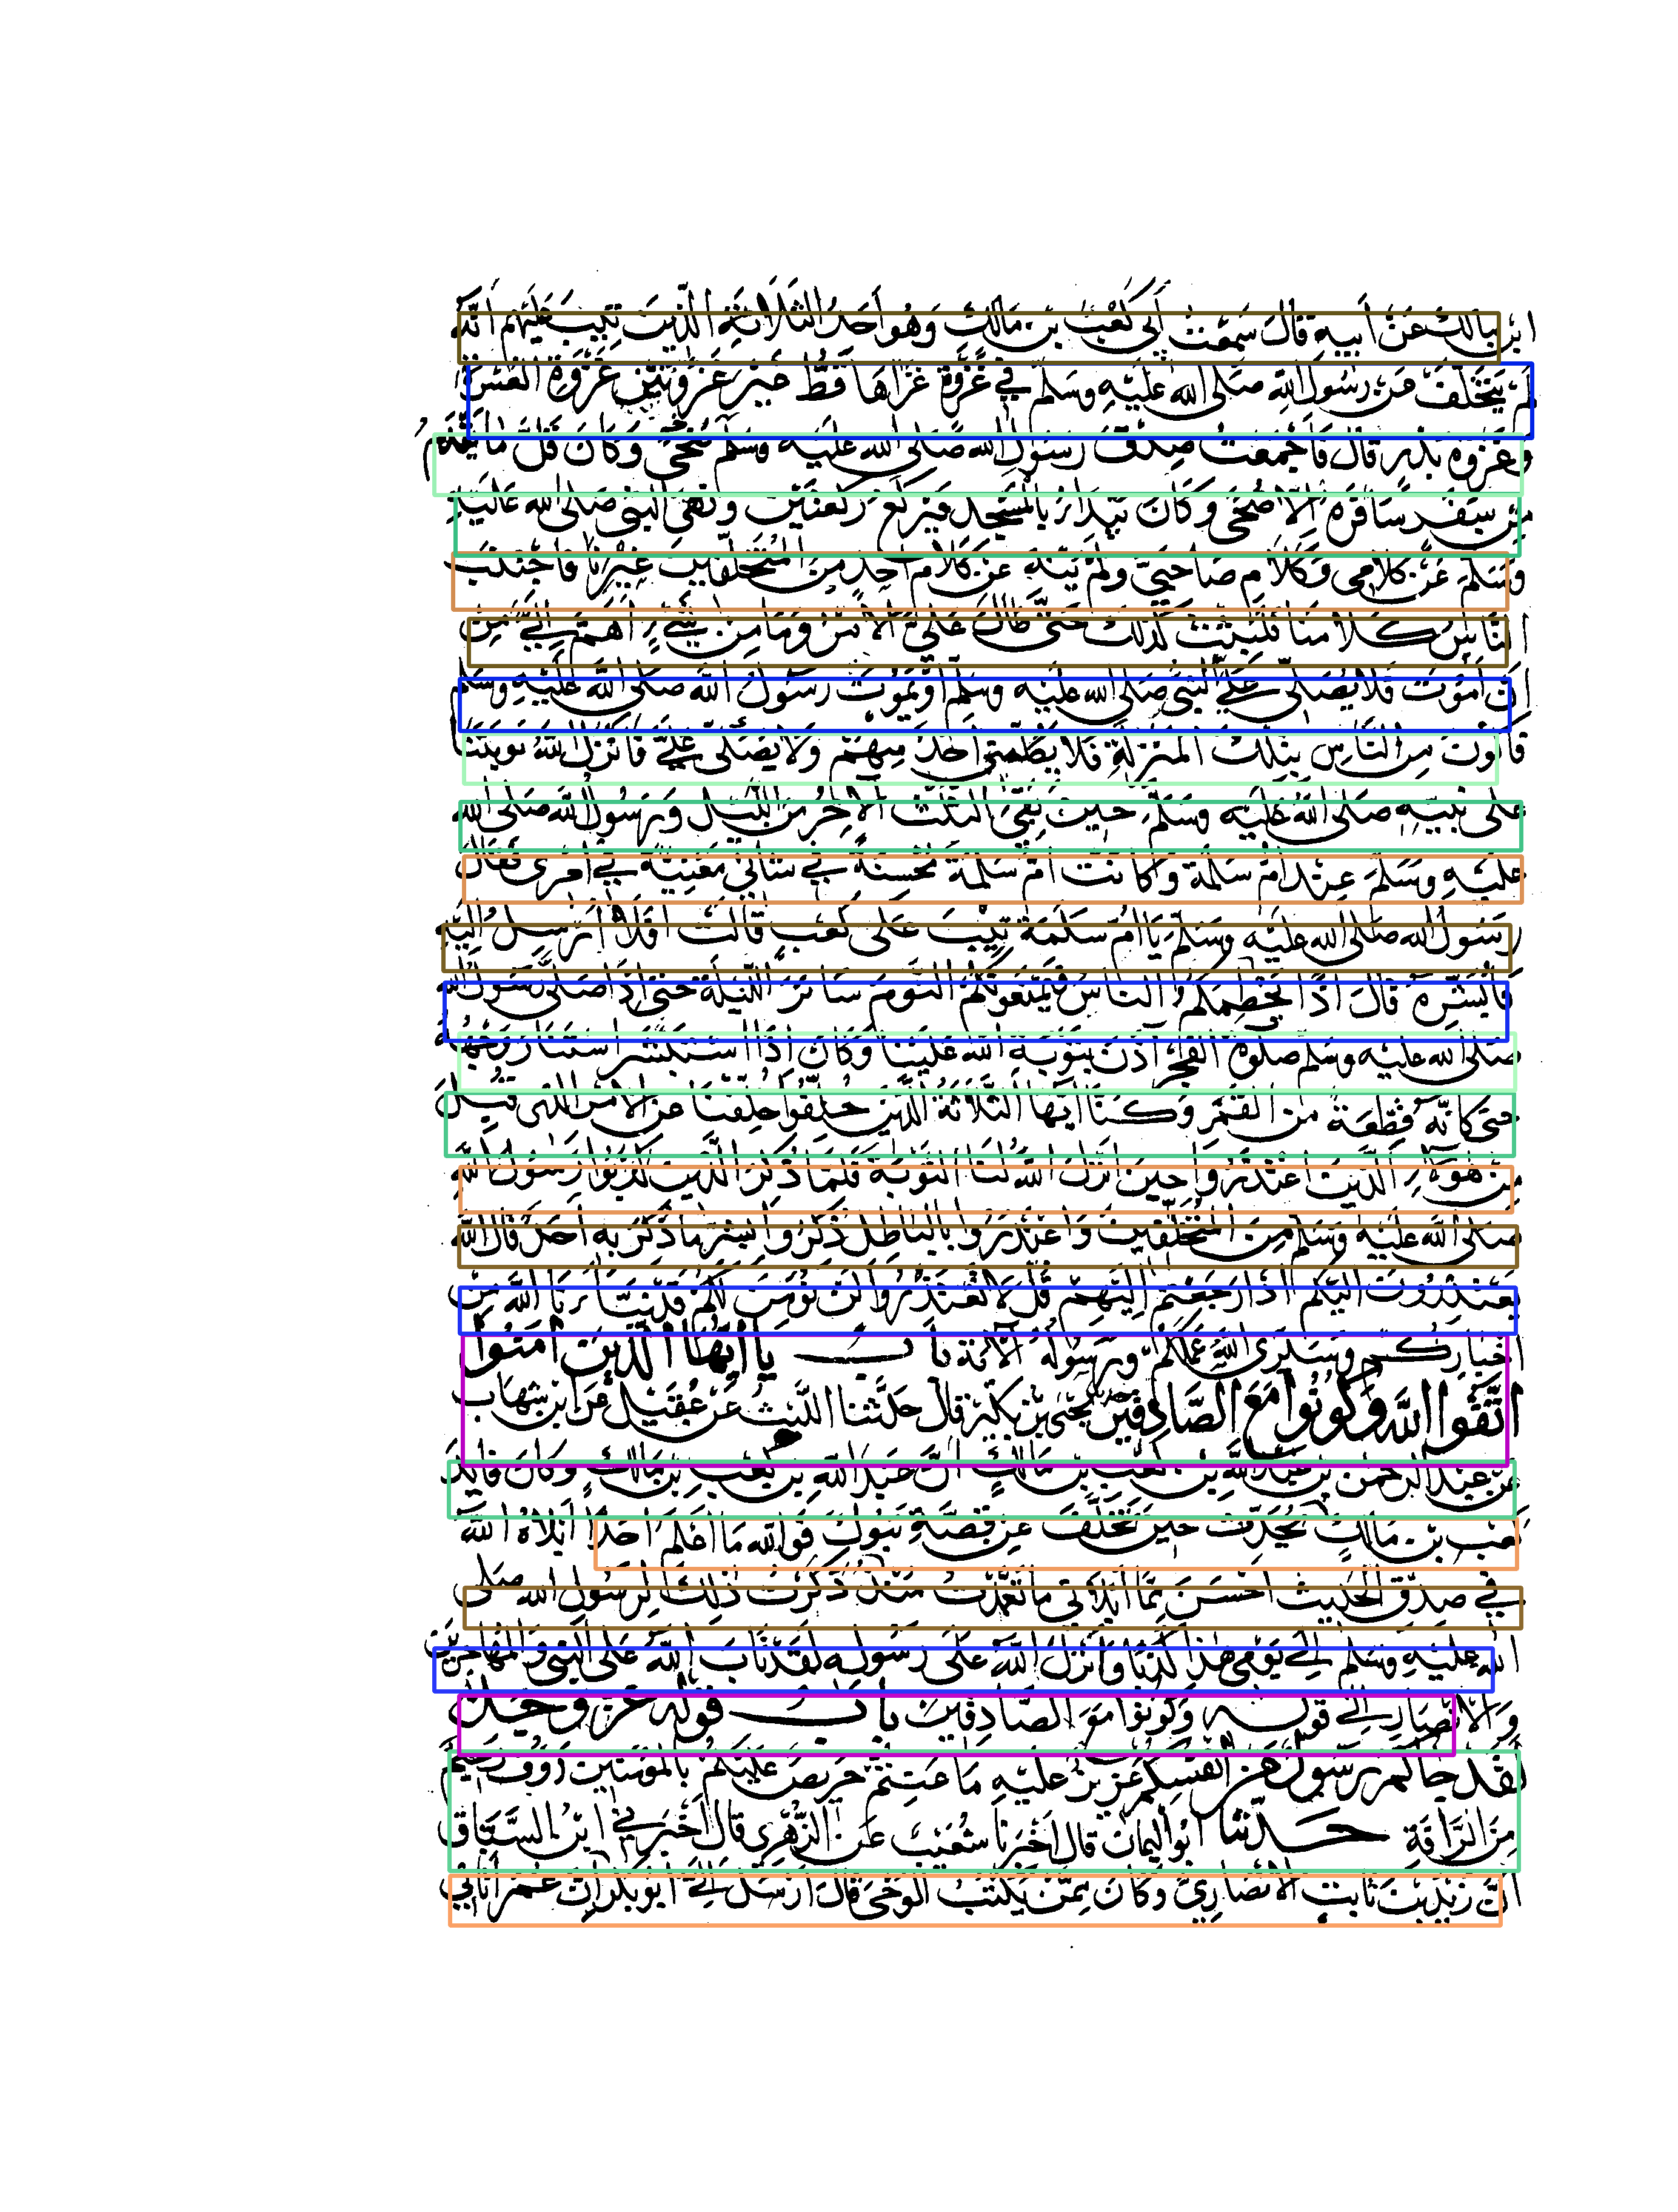 ابن مالك عن ابيه قال سمعت ابي كعب بن مالك وهو احد الثلاثة الذين تيب عليهم انه
لم يتخلف عن رسول الله صلى الله عليه وسلم في غزوة غزاها قط غير غزوتين غزوة العسرة
وغزوة بدر قال فاجمعت صدق رسول الله صلى الله عليه وسلم ضحى وكان قل ما يقدم
من سفر سافره الا ضحى وكان يبدا بالمسجد فيركع ركعتين ونهى النبي صلى الله عليه
وسلم عن كلامي وكلام صاحبي ولم ينه عن كلام احد من المتخلفين غيرنا فاجتنب
الناس كلامنا فلبثت كذلك حتى طال علي الامر وما من شيء اهم الي من
ان اموت فلا يصلي علي النبي صلى الله عليه وسلم او يموت رسول الله صلى الله عليه وسلم
فاكون من الناس بتلك المنزلة فلا يكلمني احد منهم ولا يصلى علي فانزل الله توبتنا
على نبيه صلى الله عليه وسلم حين بقي الثلث الاخر من الليل ورسول الله صلى الله
عليه وسلم عند ام سلمة وكانت ام سلمة محسنة في شاني معنية في امري فقال
رسول الله صلى الله عليه وسلم يا ام سلمة تيب على كعب قالت افلا ارسل اليه
فابشره قال اذا يحطمكم الناس فيمنعونكم النوم سائر الليلة حتى اذا صلى رسول الله
صلى الله عليه وسلم صلوة الفجر اذن بتوبة الله علينا وكان اذا استبشر استنار وجهه
حتى كانه قطعة من القمر وكنا ايها الثلاثة الذين خلفوا خلفنا عن الامر الذي قبل
من هؤلاء الذين اعتذروا حين انزل الله لنا التوبة فلما ذكر الذين كذبوا رسول الله
صلى الله عليه وسلم من المتخلفين واعتذروا بالباطل ذكروا بشر ما ذكر به احد قال الله
يعتذرون اليكم اذا رجعتم اليهم قل لا تعتذروا لن نؤمن لكم قد نبانا الله من
اخباركم وسيرى الله عملكم ورسوله الاية باب يا ايها الذين امنوا
اتقوا الله وكونوا مع الصادقين يحيى بن بكير قال حدثنا الليث عن عقيل عن ابن شهاب
عن عبد الرحمن بن عبد الله بن كعب بن مالك ان عبد الله بن كعب بن مالك وكان قائد
كعب بن مالك يحدث حين تخلف عن قصة تبوك فوالله ما اعلم احدا ابلاه الله
في صدق الحديث احسن مما ابلاني ما تعمدت منذ ذكرت ذلك لرسول الله صلى
الله عليه وسلم الى يومي هذا كذبا وانزل الله على رسوله لقد تاب الله على النبي والمهاجرين
والانصار الى قوله وكونوا مع الصادقين باب قوله عز وجل
لقد جاءكم رسول من انفسكم عزيز عليه ما عنتم حريص عليكم بالمؤمنين رؤوف رحيم
من الرافة حدثنا ابو اليمان قال اخبرنا شعيب عن الزهري قال اخبرني ابن السباق
ان زيد بن ثابت الانصاري وكان ممن يكتب الوحي قال ارسل الي ابو بكر ان عمر اتاني